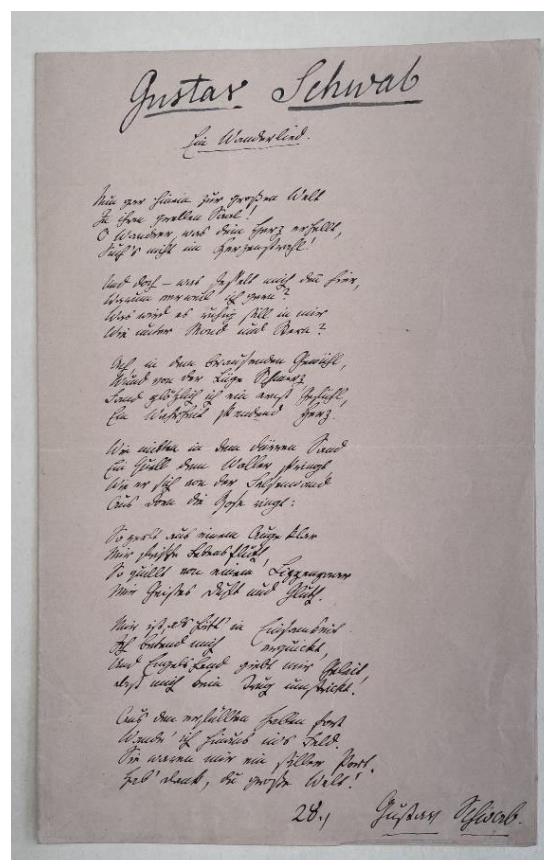 Gustav Schwab
Ein Wanderlied.
Nun gar hinein zur großen Welt
In ihren hellen Saal!
O Wandrer, was dein Herz erhellt,
Such's nicht im Kerzenstrahl!
Und doch – was fesselt mich denn hier,
Warum verweil ich gern?
Was wird es ruhig still in mir
Wie unter Mond und Stern?
Ach in dem brausenden Gewühl,
Wund von der Lüge Schmerz
Fand plötzlich ich ein ernst Gefühl,
Ein Wahrheit spendend Herz.
Wie mitten in dem dürren Sand
Ein Quell dem Waller springt
Wie er sich von der Felsenwand
Aus Dorn die Rose ringt:
So perlt aus einem Auge klar
Mir frische Lebensfluth,
So quillt von einem Lippenpaar
Mir Geistes Duft und Gluth.
Mir ist, als hätt' in Einsamkeit
Ich betend mich erquickt,
Und Engels Hand giebt mir Geleit
daß mich kein Trug umstrickt!
Aus den erfüllten Hallen fort
Wandr' ich hinaus ins Feld
Sie waren mir ein stiller Port.
Hab' Dank, du große Welt!
28., Gustav Schwab.